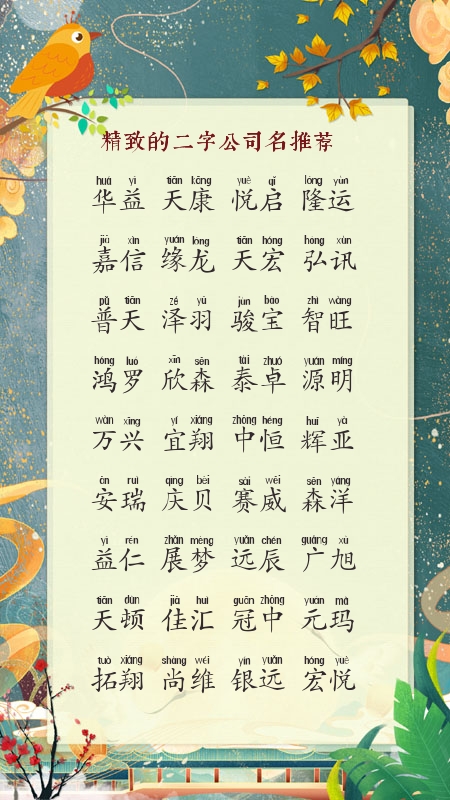 精致的二字公司名推荐
huá yì tiān kāng yuè qǐ lóng yùn
华益 天康 悦启 隆运
jiā xìn yuán lóng tiān hóng hóng xùn
嘉信 缘龙 天宏 弘讯
pǔ tiān zé yǔ jùn bǎo zhì wàng
普天 泽羽 骏宝 智旺
hóng luó xīn sēn tài zhuó yuán míng
鸿罗 欣森 泰卓 源明
wàn xīng yí xiáng zhōng héng huī yà
万兴 宜翔 中恒 辉亚
ān ruì qìng bèi sài wēi sēn yáng
安瑞 庆贝 赛威 森洋
yì rén zhǎn mèng yuǎn chén guǎng xù
益仁 展梦 远辰 广旭
tiān dùn jiā huì guān zhōng yuán mǎ
天顿 佳汇 冠中 元玛
tuò xiáng shàng wéi yín yuǎn hóng yuè
拓翔 尚维 银远 宏悦